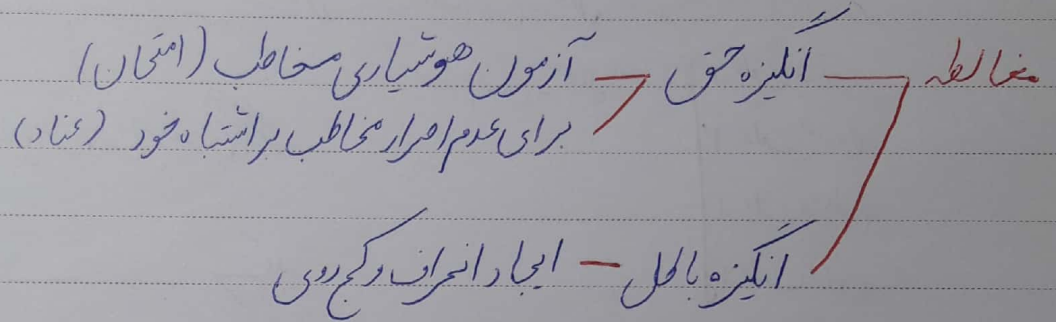 مغالطه — انگیزه حق — آزمون هوشیاری مخاطب (امتحان)
برای عدم اصرار مخاطب بر اشتباه خود (عناد)
انگیزه باطل — ایجاد انحراف و کج روی